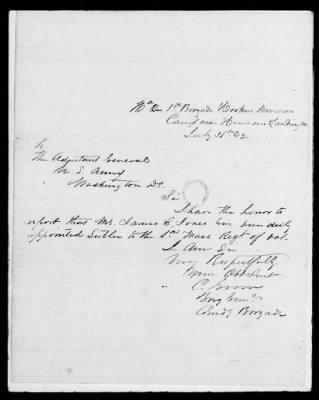 Hd Qrs 1st Brigade Hookers Division
Camp near Harrisons Landing Va
July 31st 62
To
The Adjutant General
U. S. Army
Washington D.C.
Sir
I have the honor to
report that Mr James E. Jones has been duly
appointed Sutler to the 1st Mass Regt of vol.
I Am Sir
Very Respectfully
Your Obt Servt
C. Grover
Brig Genl
Comdg Brigade